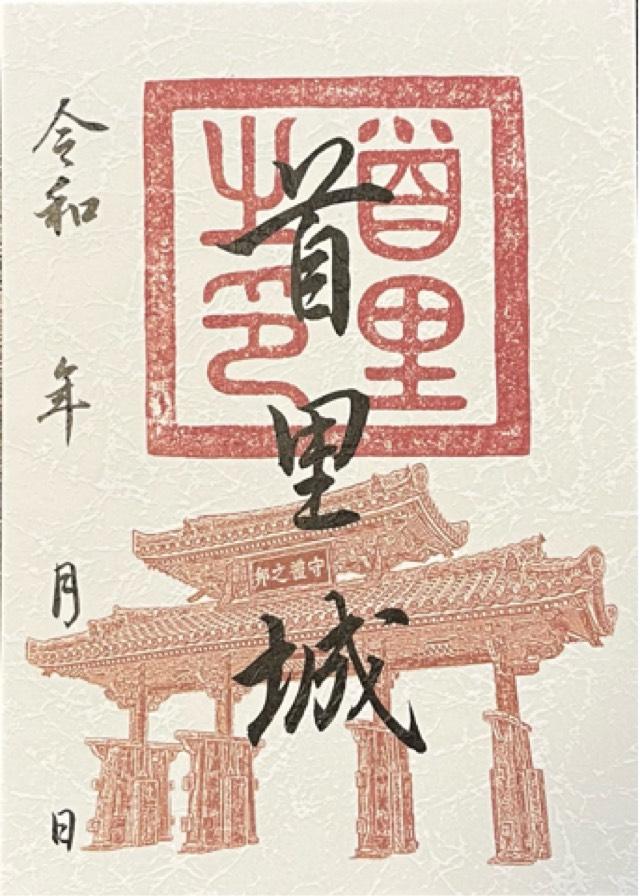 首里之印
首里城
守禮之邦
令和 年 月 日